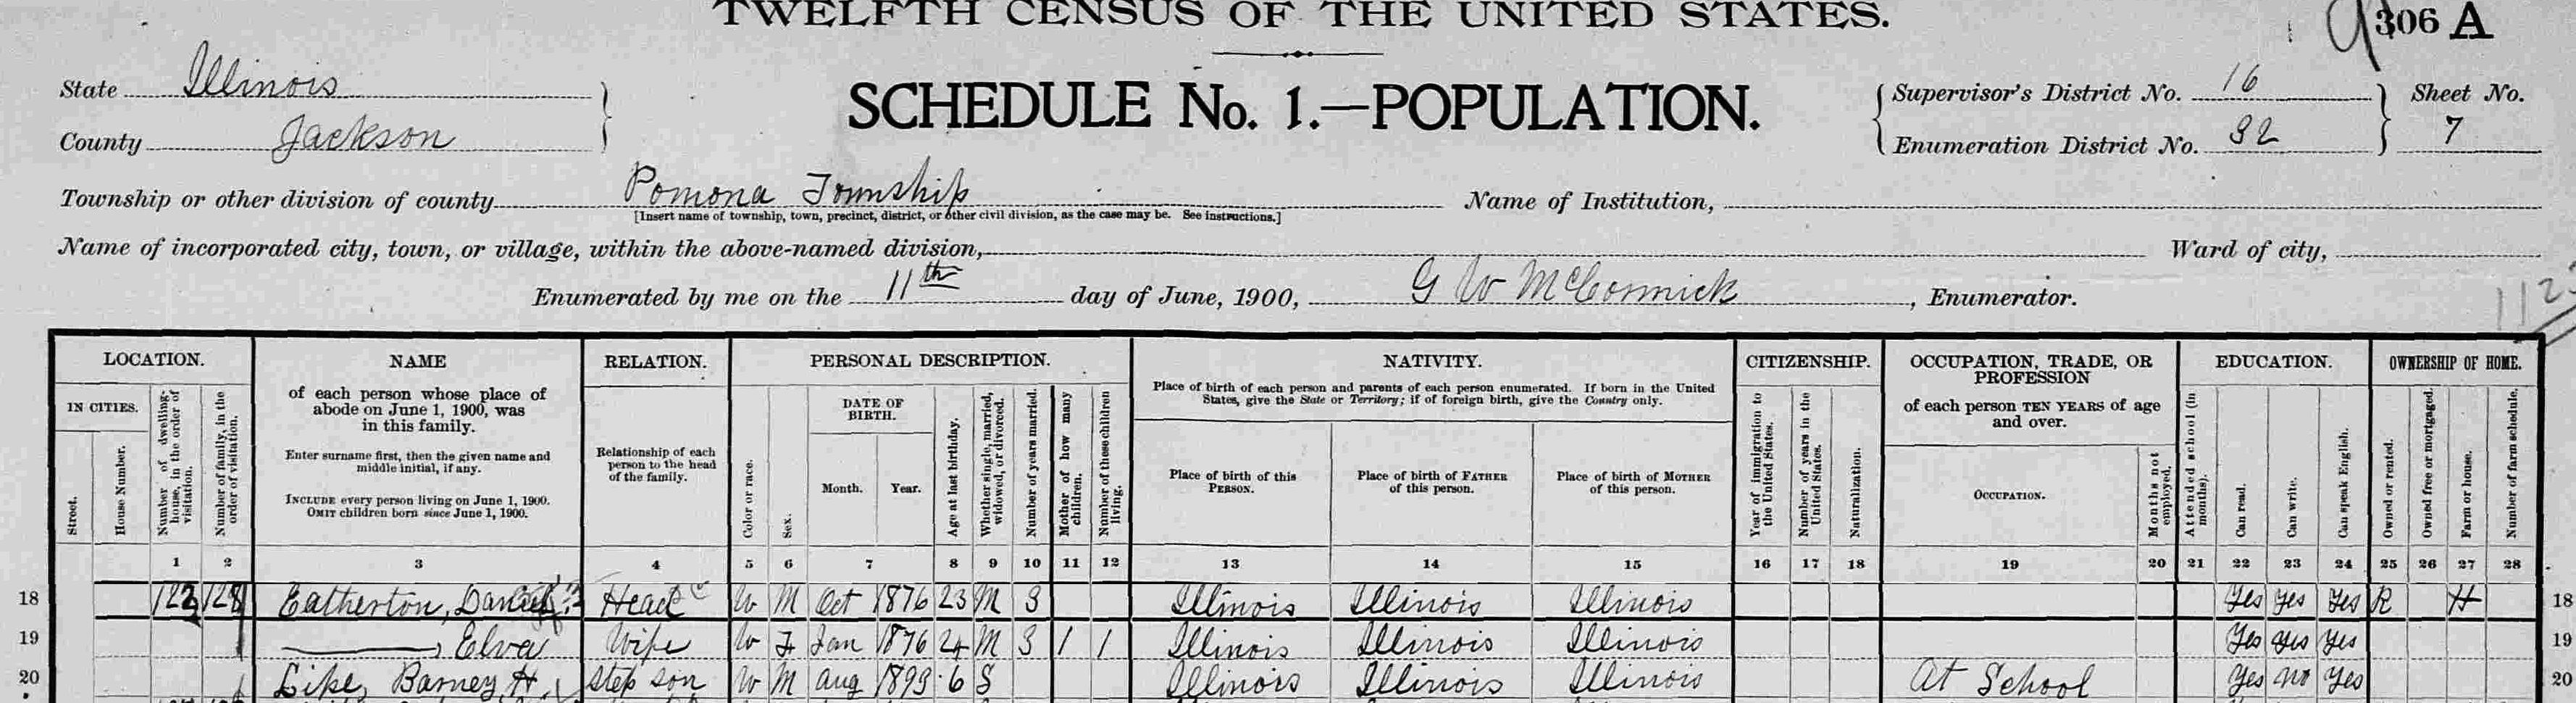 TWELFTH CENSUS OF THE UNITED STATES.
306 A
State Illinois
County Jackson
SCHEDULE No. 1.—POPULATION.
Supervisor's District No. 16
Enumeration District No. 32
Sheet No.
7
Township or other division of county Pomona Township
[Insert name of township, town, precinct, district, or other civil division, as the case may be. See instructions.]
Name of Institution,
Name of incorporated city, town, or village, within the above-named division,
Ward of city,
Enumerated by me on the 11th day of June, 1900, G W McCormick, Enumerator.
LOCATION.
IN CITIES.
Street.
House Number.
Number of dwelling-house, in the order of visitation.
Number of family, in the order of visitation.
NAME
of each person whose place of
abode on June 1, 1900, was
in this family.
Enter surname first, then the given name and
middle initial, if any.
INCLUDE every person living on June 1, 1900.
OMIT children born since June 1, 1900.
RELATION.
Relationship of each
person to the head
of the family.
PERSONAL DESCRIPTION.
Color or race.
Sex.
DATE OF
BIRTH.
Month.
Year.
Age at last birthday.
Whether single, married, widowed, or divorced.
Number of years married.
Mother of how many children.
Number of these children living.
NATIVITY.
Place of birth of each person and parents of each person enumerated. If born in the United
States, give the State or Territory; if of foreign birth, give the Country only.
Place of birth of this
PERSON.
Place of birth of FATHER
of this person.
Place of birth of MOTHER
of this person.
CITIZENSHIP.
Year of immigration to the United States.
Number of years in the United States.
Naturalization.
OCCUPATION, TRADE, OR
PROFESSION
of each person TEN YEARS of age
and over.
OCCUPATION.
Months not employed.
EDUCATION.
Attended school (in months).
Can read.
Can write.
Can speak English.
OWNERSHIP OF HOME.
Owned or rented.
Owned free or mortgaged.
Farm or house.
Number of farm schedule.
1 2 3 4 5 6 7 8 9 10 11 12 13 14 15 16 17 18 19 20 21 22 23 24 25 26 27 28
18 Eatherton, Daniel Head W M Oct 1876 23 M 3 Illinois Illinois Illinois Yes Yes Yes R H 18
19 ——, Elva Wife W F Jan 1876 24 M 3 1 1 Illinois Illinois Illinois Yes Yes Yes 19
20 Lipe, Barney H. Step son W M Aug 1893 6 S Illinois Illinois Illinois At School Yes no Yes 20